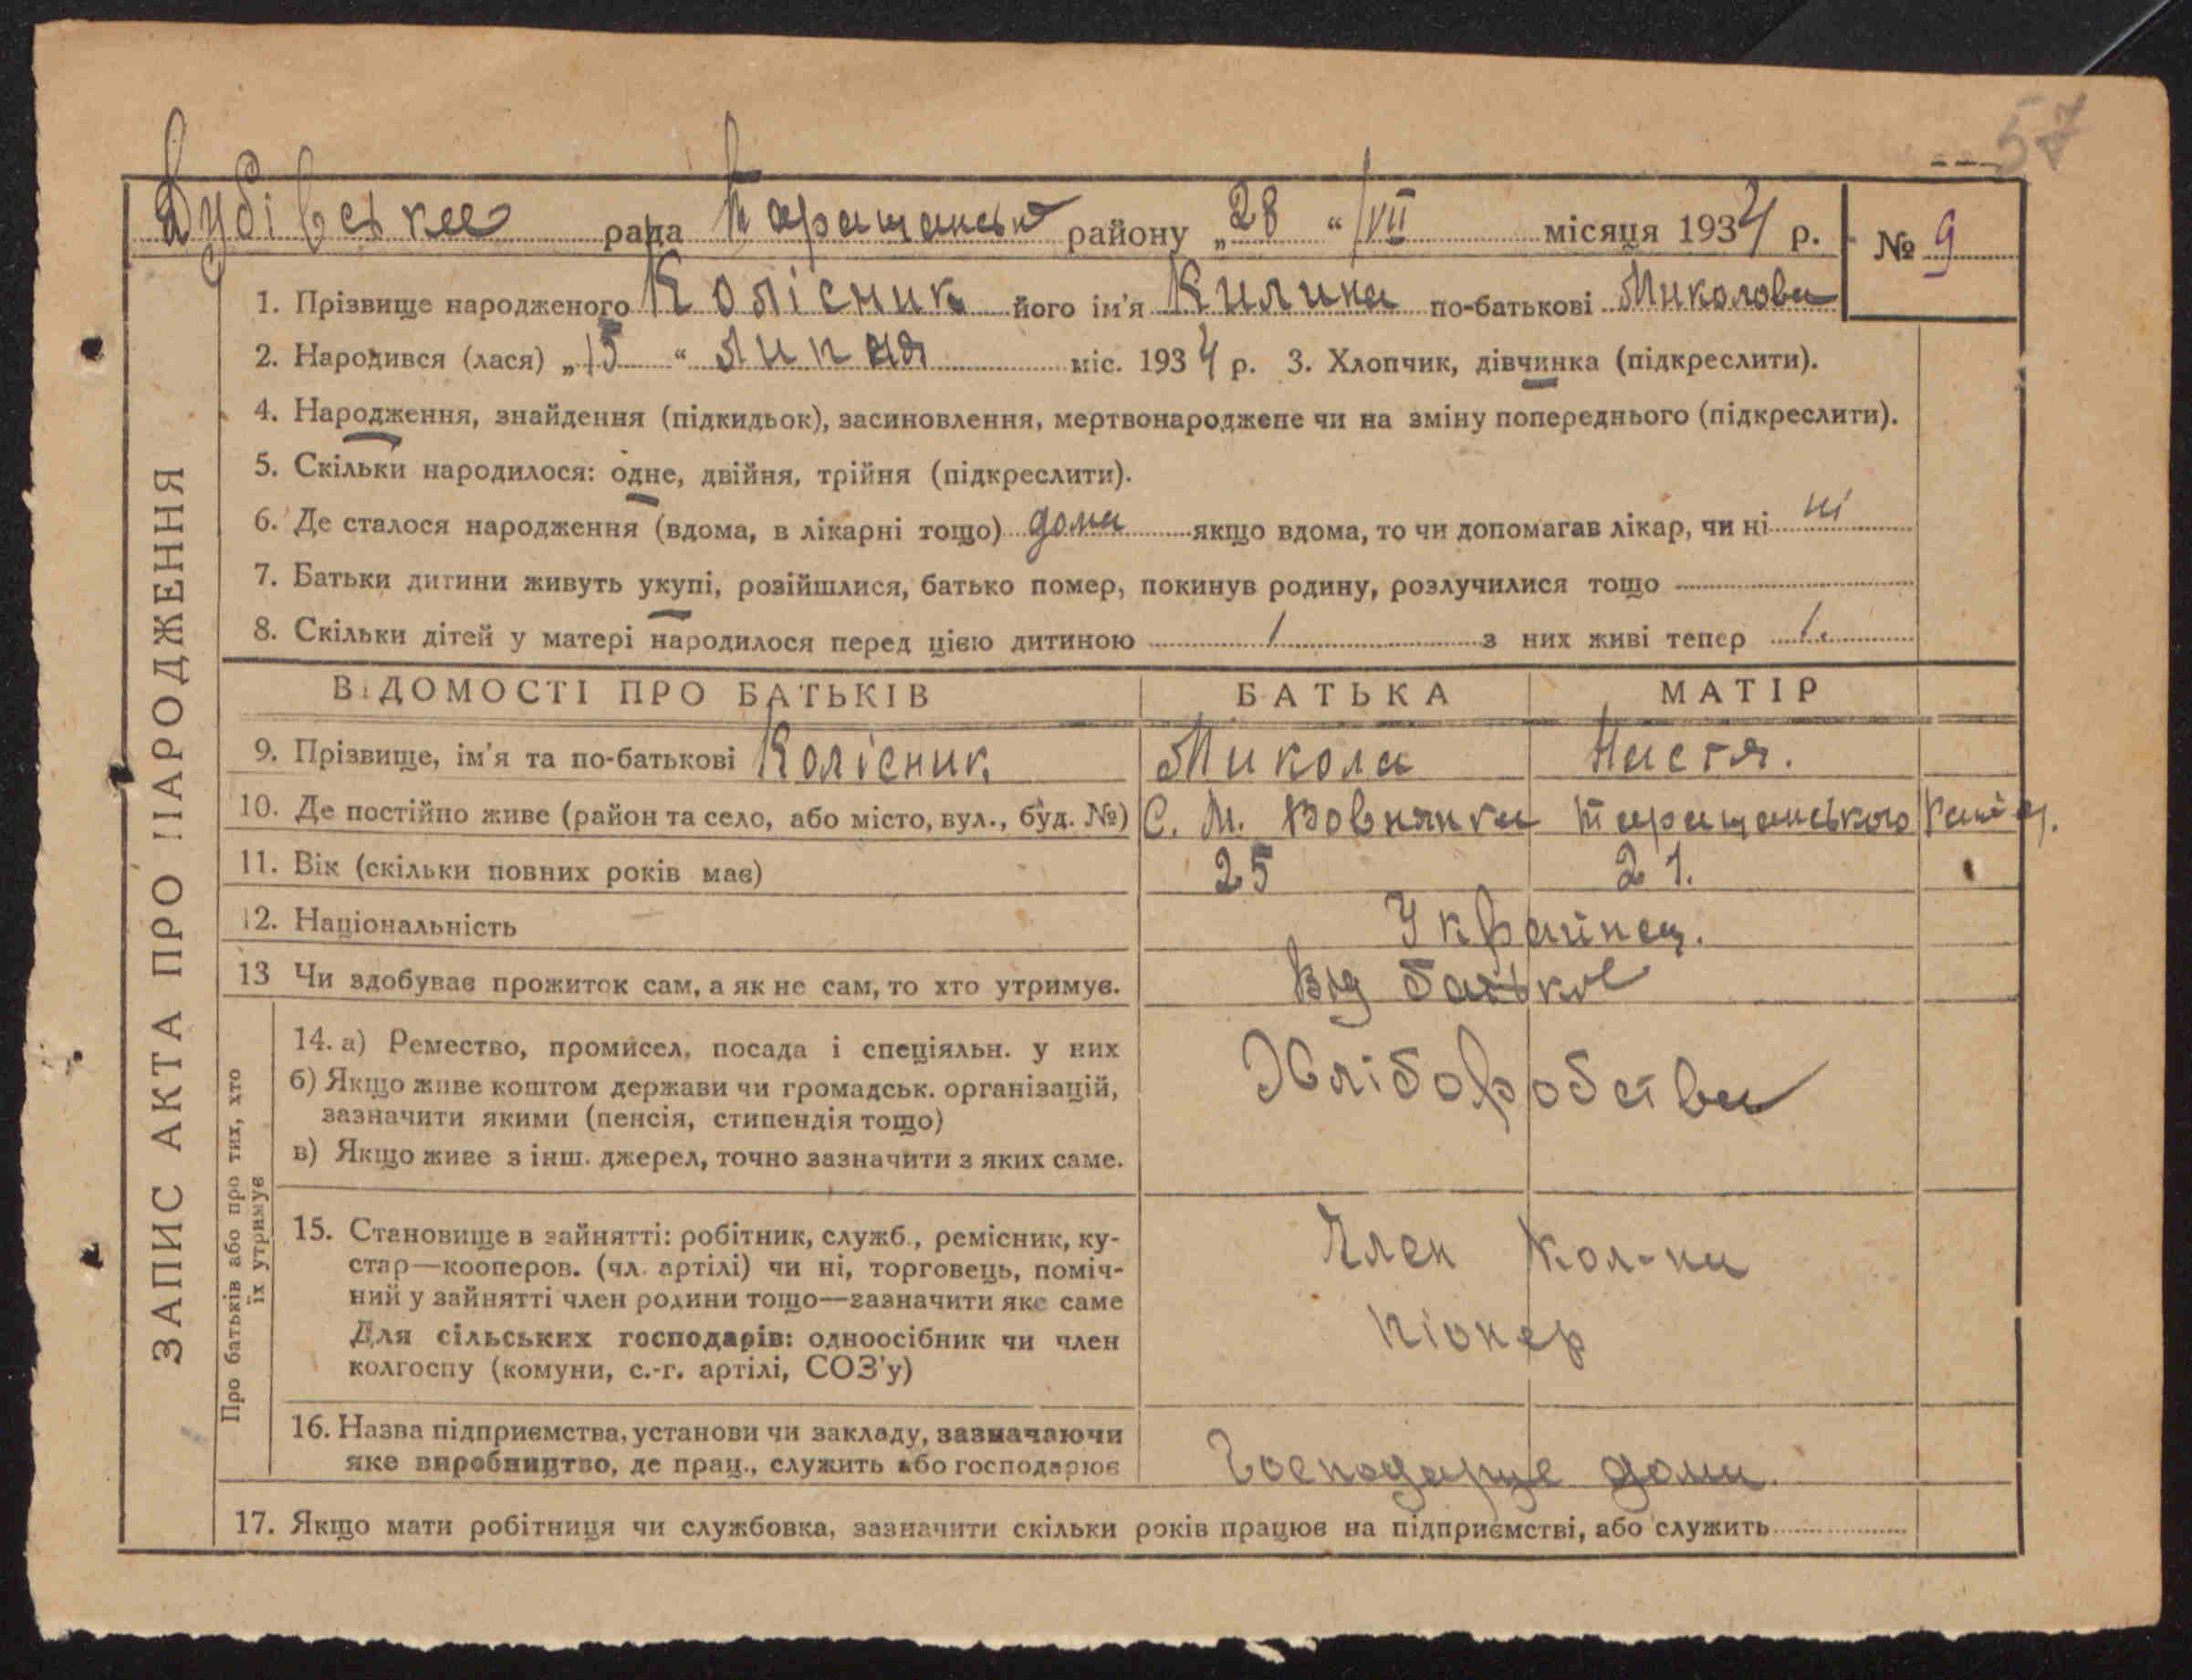 57
Дубівська рада Таращанськ району „28 “ /VII місяця 1934 р. № 9
1. Прізвище народженого Колісник його ім'я Килина по-батькові Миколова
2. Народився (лася) „15 “ Липня міс. 1934 р. 3. Хлопчик, дівчинка (підкреслити).
4. Народження, знайдення (підкидьок), засиновлення, мертвонароджене чи на зміну попереднього (підкреслити).
5. Скільки народилося: одне, двійня, трійня (підкреслити).
6. Де сталося народження (вдома, в лікарні тощо) дома якщо вдома, то чи допомагав лікар, чи ні ні
7. Батьки дитини живуть укупі, розійшлися, батько помер, покинув родину, розлучилися тощо
8. Скільки дітей у матері народилося перед цією дитиною 1 з них живі тепер 1.
ВІДОМОСТІ ПРО БАТЬКІВ БАТЬКА МАТІР
9. Прізвище, ім'я та по-батькові Колісник Микола Настя.
10. Де постійно живе (район та село, або місто, вул., буд. №) С. М. Вовнянка Таращанського
11. Вік (скільки повних років має) 25 21.
12. Національність Українец.
13 Чи здобуває прожиток сам, а як не сам, то хто утримує. Від батьків
14. а) Ремество, промисел, посада і спеціяльн. у них Хліборобства
б) Якщо живе коштом держави чи громадськ. організацій,
зазначити якими (пенсія, стипендія тощо)
в) Якщо живе з інш. джерел, точно зазначити з яких саме.
15. Становище в зайнятті: робітник, служб., ремісник, ку-
стар—кооперов. (чл. артілі) чи ні, торговець, поміч-
ний у зайнятті член родини тощо—зазначити яке саме
Для сільських господарів: одноосібник чи член
колгоспу (комуни, с.-г. артілі, СОЗ'у)
Член Кол-па
Піонер
16. Назва підприємства, установи чи закладу, зазначаючи
яке виробництво, де прац., служить або господарює Господарує дома.
17. Якщо мати робітниця чи службовка, зазначити скільки років працює на підприємстві, або служить
ЗАПИС АКТА ПРО НАРОДЖЕННЯ
Про батьків або про тих, хто
їх утримує